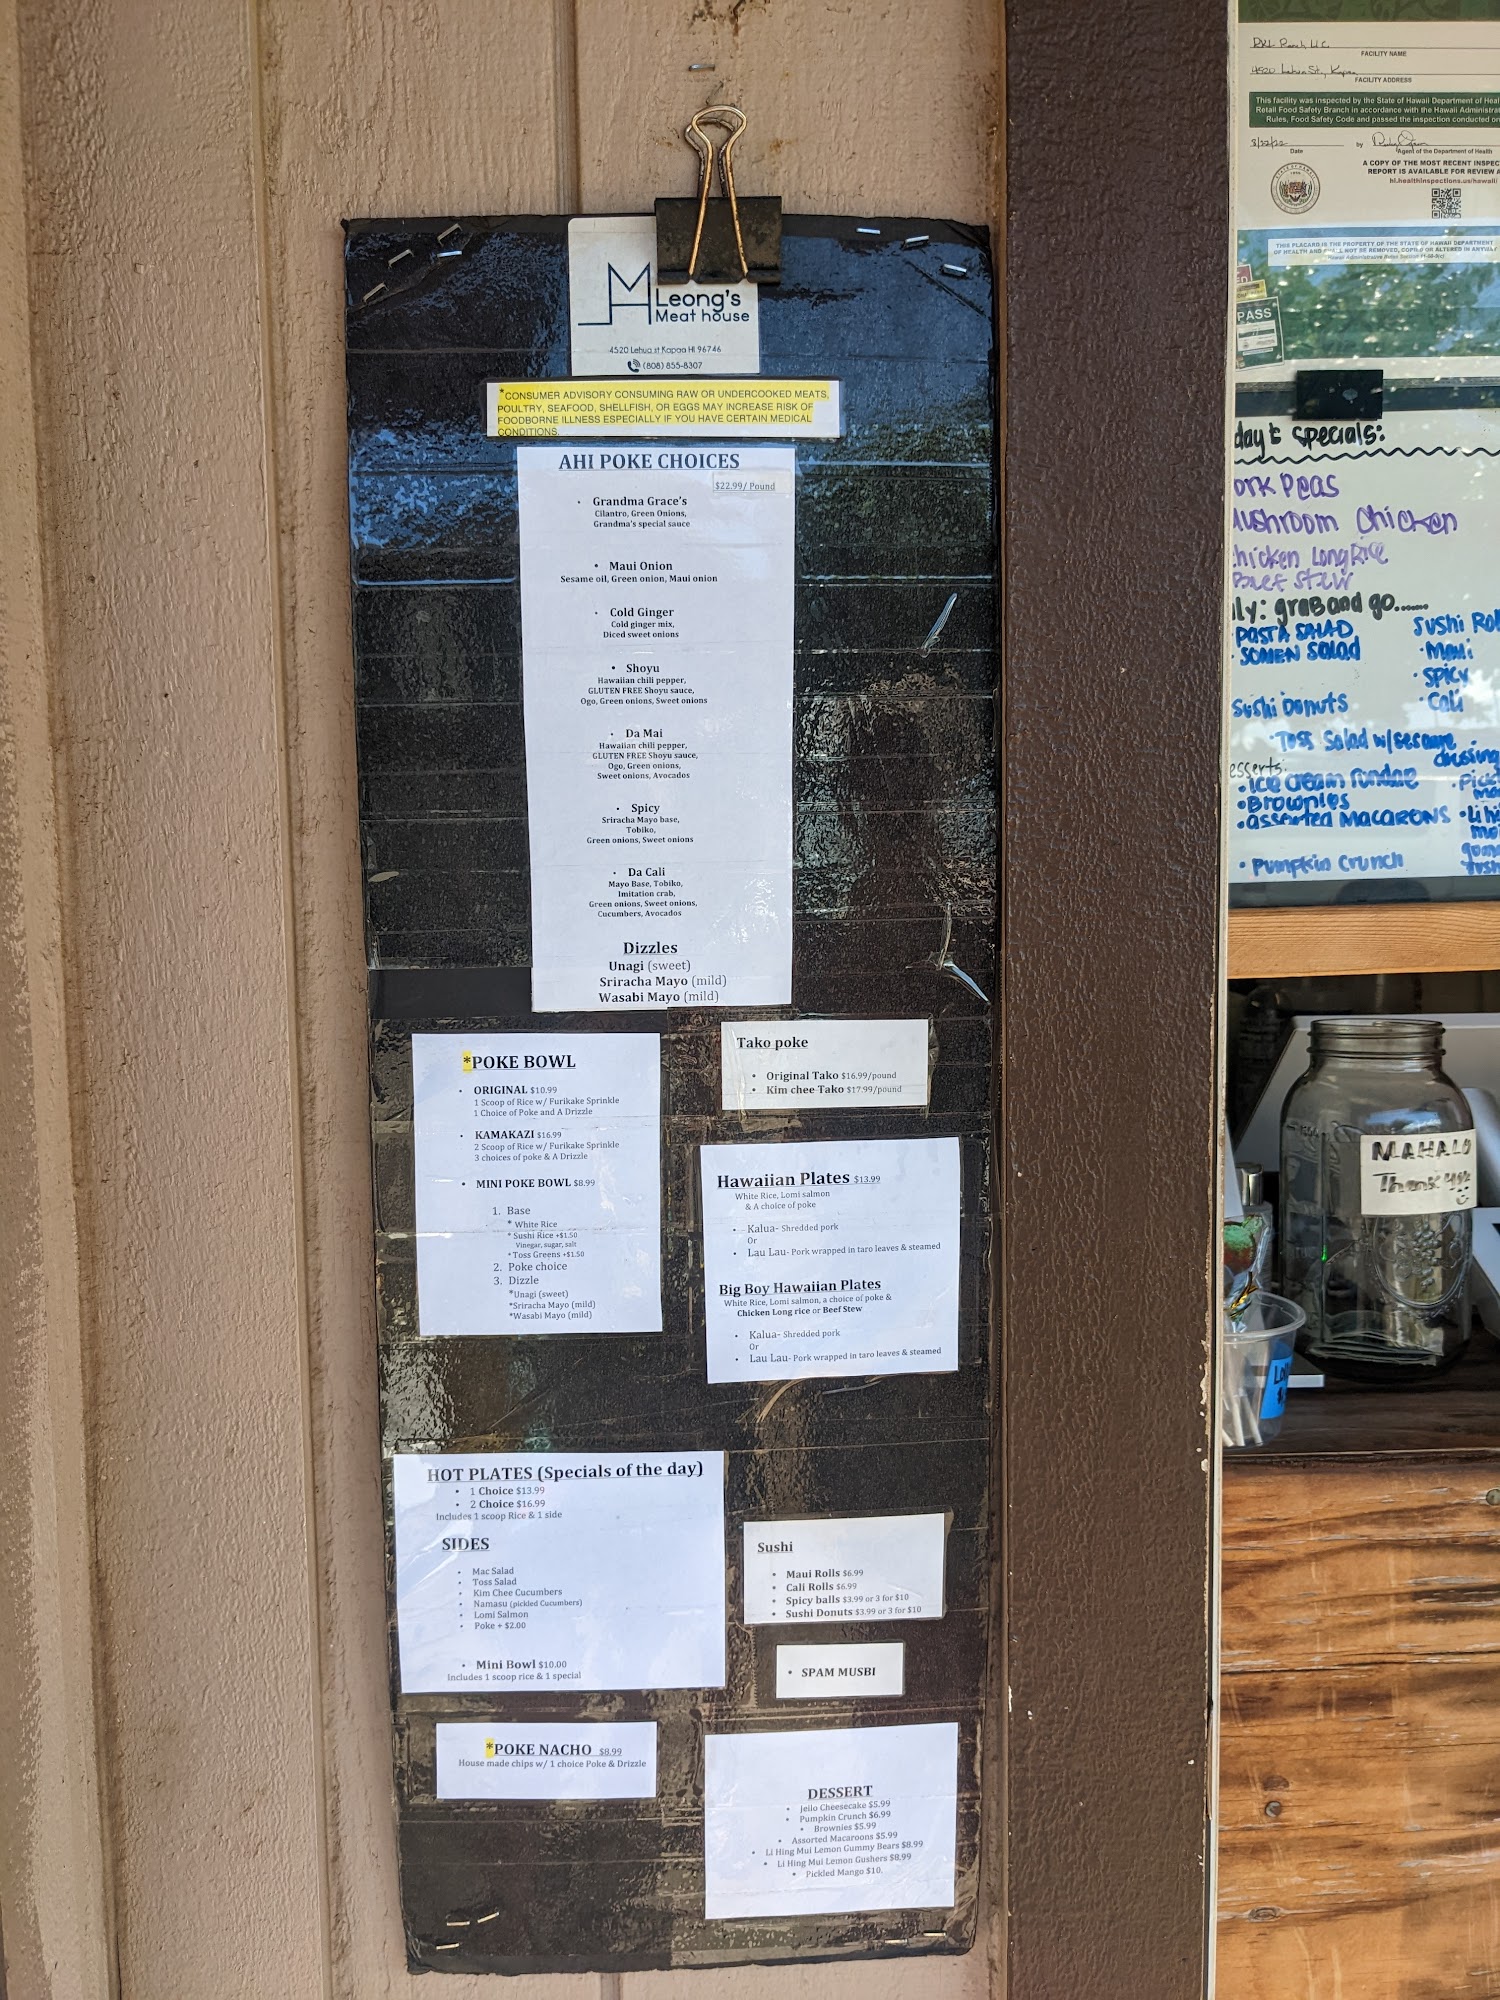 Leong's
Meat house
4520 Lehua st Kapaa HI 96746
(808) 855-8307
*CONSUMER ADVISORY CONSUMING RAW OR UNDERCOOKED MEATS,
POULTRY, SEAFOOD, SHELLFISH, OR EGGS MAY INCREASE RISK OF
FOODBORNE ILLNESS ESPECIALLY IF YOU HAVE CERTAIN MEDICAL
CONDITIONS.
AHI POKE CHOICES
$22.99/ Pound
• Grandma Grace's
Cilantro, Green Onions,
Grandma's special sauce
• Maui Onion
Sesame oil, Green onion, Maui onion
• Cold Ginger
Cold ginger mix,
Diced sweet onions
• Shoyu
Hawaiian chili pepper,
GLUTEN FREE Shoyu sauce,
Ogo, Green onions, Sweet onions
• Da Mai
Hawaiian chili pepper,
GLUTEN FREE Shoyu sauce,
Ogo, Green onions,
Sweet onions, Avocados
• Spicy
Sriracha Mayo base,
Tobiko,
Green onions, Sweet onions
• Da Cali
Mayo Base, Tobiko,
Imitation crab,
Green onions, Sweet onions,
Cucumbers, Avocados
Dizzles
Unagi (sweet)
Sriracha Mayo (mild)
Wasabi Mayo (mild)
*POKE BOWL
• ORIGINAL $10.99
1 Scoop of Rice w/ Furikake Sprinkle
1 Choice of Poke and A Drizzle
• KAMAKAZI $16.99
2 Scoop of Rice w/ Furikake Sprinkle
3 choices of poke & A Drizzle
• MINI POKE BOWL $8.99
1. Base
* White Rice
* Sushi Rice +$1.50
Vinegar, sugar, salt
* Toss Greens +$1.50
2. Poke choice
3. Dizzle
*Unagi (sweet)
*Sriracha Mayo (mild)
*Wasabi Mayo (mild)
Tako poke
• Original Tako $16.99/pound
• Kim chee Tako $17.99/pound
Hawaiian Plates $13.99
White Rice, Lomi salmon
& A choice of poke
• Kalua- Shredded pork
Or
• Lau Lau- Pork wrapped in taro leaves & steamed
Big Boy Hawaiian Plates
White Rice, Lomi salmon, a choice of poke &
Chicken Long rice or Beef Stew
• Kalua- Shredded pork
Or
• Lau Lau- Pork wrapped in taro leaves & steamed
HOT PLATES (Specials of the day)
• 1 Choice $13.99
• 2 Choice $16.99
Includes 1 scoop Rice & 1 side
SIDES
• Mac Salad
• Toss Salad
• Kim Chee Cucumbers
• Namasu (pickled Cucumbers)
• Lomi Salmon
• Poke + $2.00
• Mini Bowl $10.00
Includes 1 scoop rice & 1 special
Sushi
• Maui Rolls $6.99
• Cali Rolls $6.99
• Spicy balls $3.99 or 3 for $10
• Sushi Donuts $3.99 or 3 for $10
• SPAM MUSBI
*POKE NACHO $8.99
House made chips w/ 1 choice Poke & Drizzle
DESSERT
• Jello Cheesecake $5.99
• Pumpkin Crunch $6.99
• Brownies $5.99
• Assorted Macaroons $5.99
• Li Hing Mui Lemon Gummy Bears $8.99
• Li Hing Mui Lemon Gushers $8.99
• Pickled Mango $10.
FACILITY NAME
4520 Lehua St, Kapaa
FACILITY ADDRESS
This facility was inspected by the State of Hawaii Department of Heal
Retail Food Safety Branch in accordance with the Hawaii Administrat
Rules, Food Safety Code and passed the inspection conducted on
3/22/22 by
Date Agent of the Department of Health
A COPY OF THE MOST RECENT INSPEC
REPORT IS AVAILABLE FOR REVIEW A
hi.healthinspections.us/hawaii
THIS PLACARD IS THE PROPERTY OF THE STATE OF HAWAII DEPARTMENT
OF HEALTH AND SHALL NOT BE REMOVED, COPIED OR ALTERED IN ANYWAY
PASS
day's specials:
ork Peas
ushroom Chicken
hicken Long Rice
Beef Stew
ly: grab and go......
• PASTA SALAD
• SOMEN Salad
Sushi Rol
• Maui
• Spicy
• Cali
Sushi Donuts
• Toss Salad w/sesame
dressing
esserts:
• ice cream sundae
• Brownies
• assorted MACARONS
• Pumpkin Crunch
MAHALO
Thank you